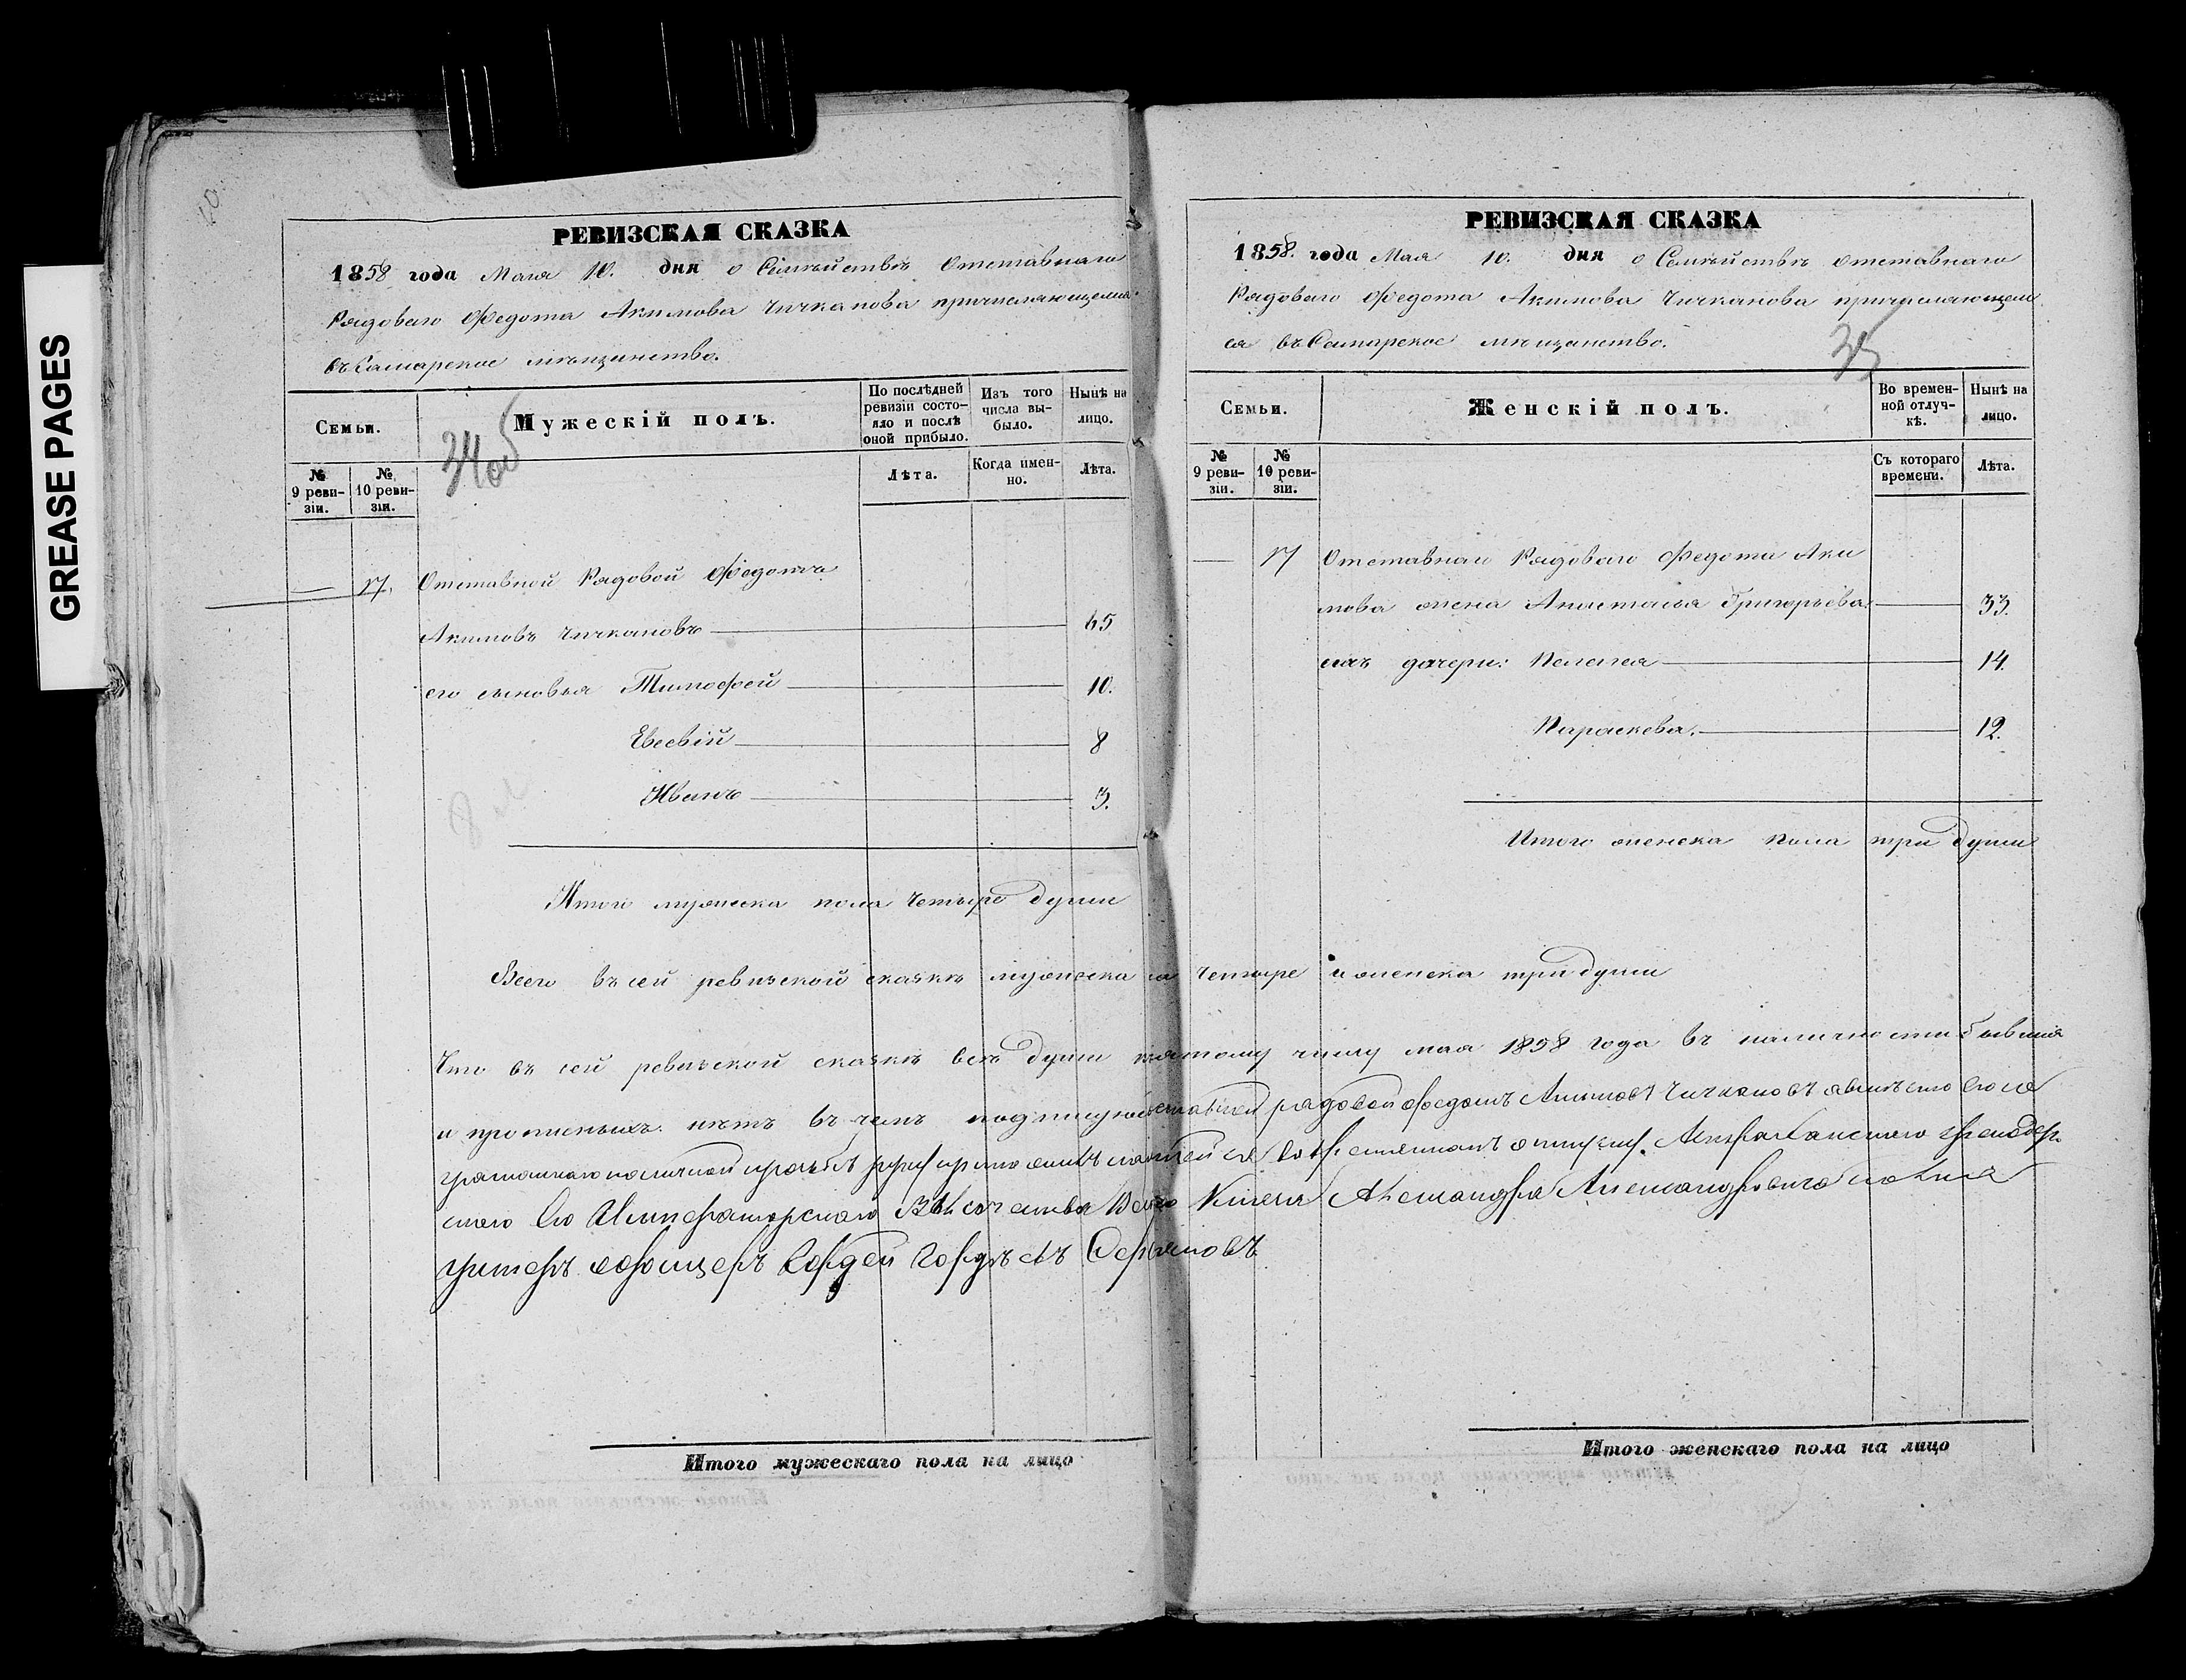 GREASE PAGES
РЕВИЗСКАЯ СКАЗКА
1858 года Мая 10. дня о Семѣйствѣ Отставнаго
Рядоваго Федота Акимова Чичканова причисляющемся
въ Самарское мѣщанство.
Семьи.
34об
Мужескій полъ.
По послѣдней ревизіи состо-
яло и послѣ оной прибыло.
Изъ того числа вы-
было.
Нынѣ на лицо.
№ 9 реви-
зіи.
№ 10 реви-
зіи.
Лѣта.
Когда имен-
но.
Лѣта.
— 17. Отставной Рядовой Федотъ
Акимовъ Чичкановъ 65
его сыновья Тимофей 10.
Евсевій 8
Иванъ 3.
Итого мужеска пола четыре души
Итого мужескаго пола на лицо
РЕВИЗСКАЯ СКАЗКА
1858. года Мая 10. дня о Семѣйствѣ отставнаго
Рядоваго Федота Акимова Чичканова причисляющем
ся въ Самарское мѣщанство.
35
Семьи.
Женскій полъ.
Во времен-
ной отлуч-
кѣ.
Нынѣ на лицо.
№ 9 реви-
зіи.
№ 10 реви-
зіи.
Съ котораго времени.
Лѣта.
— 17 Отставнаго Рядоваго Федота Аки
мова жена Анастасья Григорьева 33.
ихъ дочери: Пелагея 14.
Параскева. 12.
Итого женска пола три души
Всего въ сей ревизской сказкѣ мужеска четыре и женска три души
Что въ сей ревизской сказкѣ всѣ души мая 1858 года въ наличности бывшія
и прописныхъ нѣтъ въ чемъ подписуюсь рядовой Федотъ Акимовъ Чичкановъ а вмѣсто его не
грамотнаго по личной прозьбѣ руку приложилъ Астраханскаго гренадер
скаго Его Императорскаго Высочества Князя Александра Александровича полка
унтеръ офицеръ Гордей Гордѣевъ
Итого женскаго пола на лицо